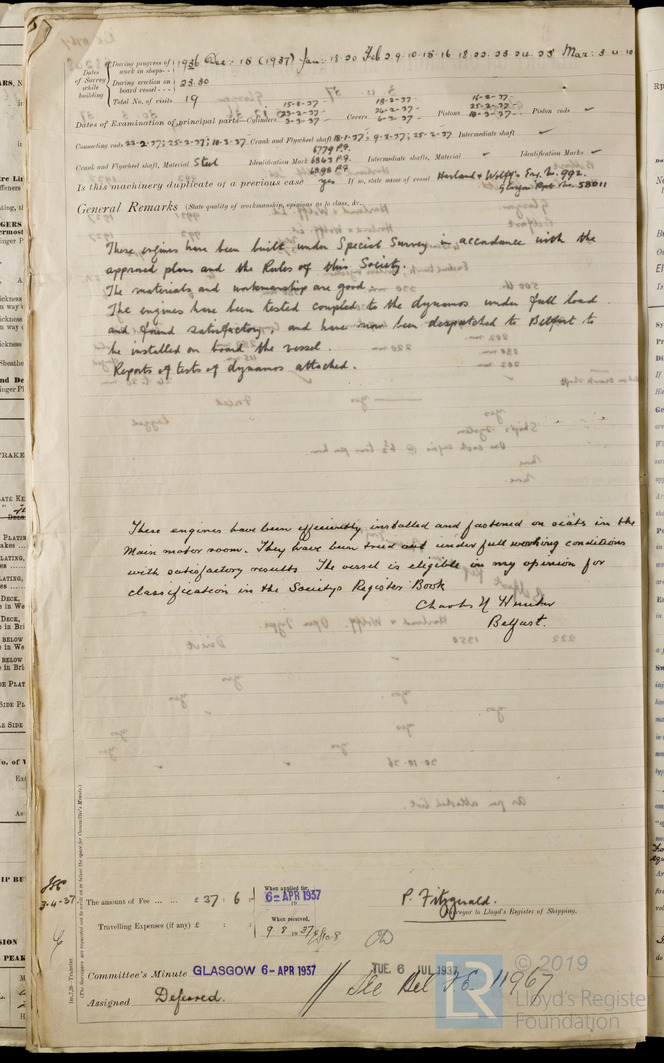 Dates of Survey while building
During progress of work in shops - - 1936 Dec: 18 (1937) Jan: 18 20 Feb 2 9 10 15 16 18 22 23 24 25 Mar: 3 4 10
During erection on board vessel - - - 23.30
Total No. of visits 19
Dates of Examination of principal parts—Cylinders 15-2-37 23-2-37 3-3-37 Covers 18-2-37 24-2-37 4-3-37 Pistons 16-2-37 25-2-37 10-3-37 Piston rods ✓
Connecting rods 22-2-37; 25-2-37; 10-3-37 Crank and Flywheel shaft 18-1-37; 9-2-37; 25-2-37 Intermediate shaft ✓
Crank and Flywheel shaft, Material Steel Identification Mark 6779 P.F. 6863 P.F. 6898 P.F. Intermediate shafts, Material ✓ Identification Marks ✓
Is this machinery duplicate of a previous case yes If so, state name of vessel Harland & Wolff's Eng. No. 992. Glasgow Rpt. No. 58011
General Remarks (State quality of workmanship, opinions as to class, &c.
These engines have been built under Special Survey in accordance with the
approved plans and the Rules of this Society.
The materials and workmanship are good.
The engines have been tested coupled to the dynamos under full load
and found satisfactory, and have now been despatched to Belfast to
be installed on board the vessel.
Reports of tests of dynamos attached.
These engines have been efficiently installed and fastened on seats in the
Main motor room. They have been tried out under full working conditions
with satisfactory results. The vessel is eligible in my opinion for
classification in the Societys Register Book
Charles N Hunter
Belfast.
3.4.37
The amount of Fee ... ... £ 37 : 6 :
When applied for, 6 - APR 1937
Travelling Expenses (if any) £ : :
When received, 9.8 1937
P. Fitzgerald.
Surveyor to Lloyd's Register of Shipping.
Committee's Minute GLASGOW 6 - APR 1937
TUE. 6 JUL 1937
See Bel J.E. 11967
Assigned Deferred.
(The Surveyors are requested not to write on or below the space for Committee's Minute.)
© 2019
Lloyd's Register
Foundation